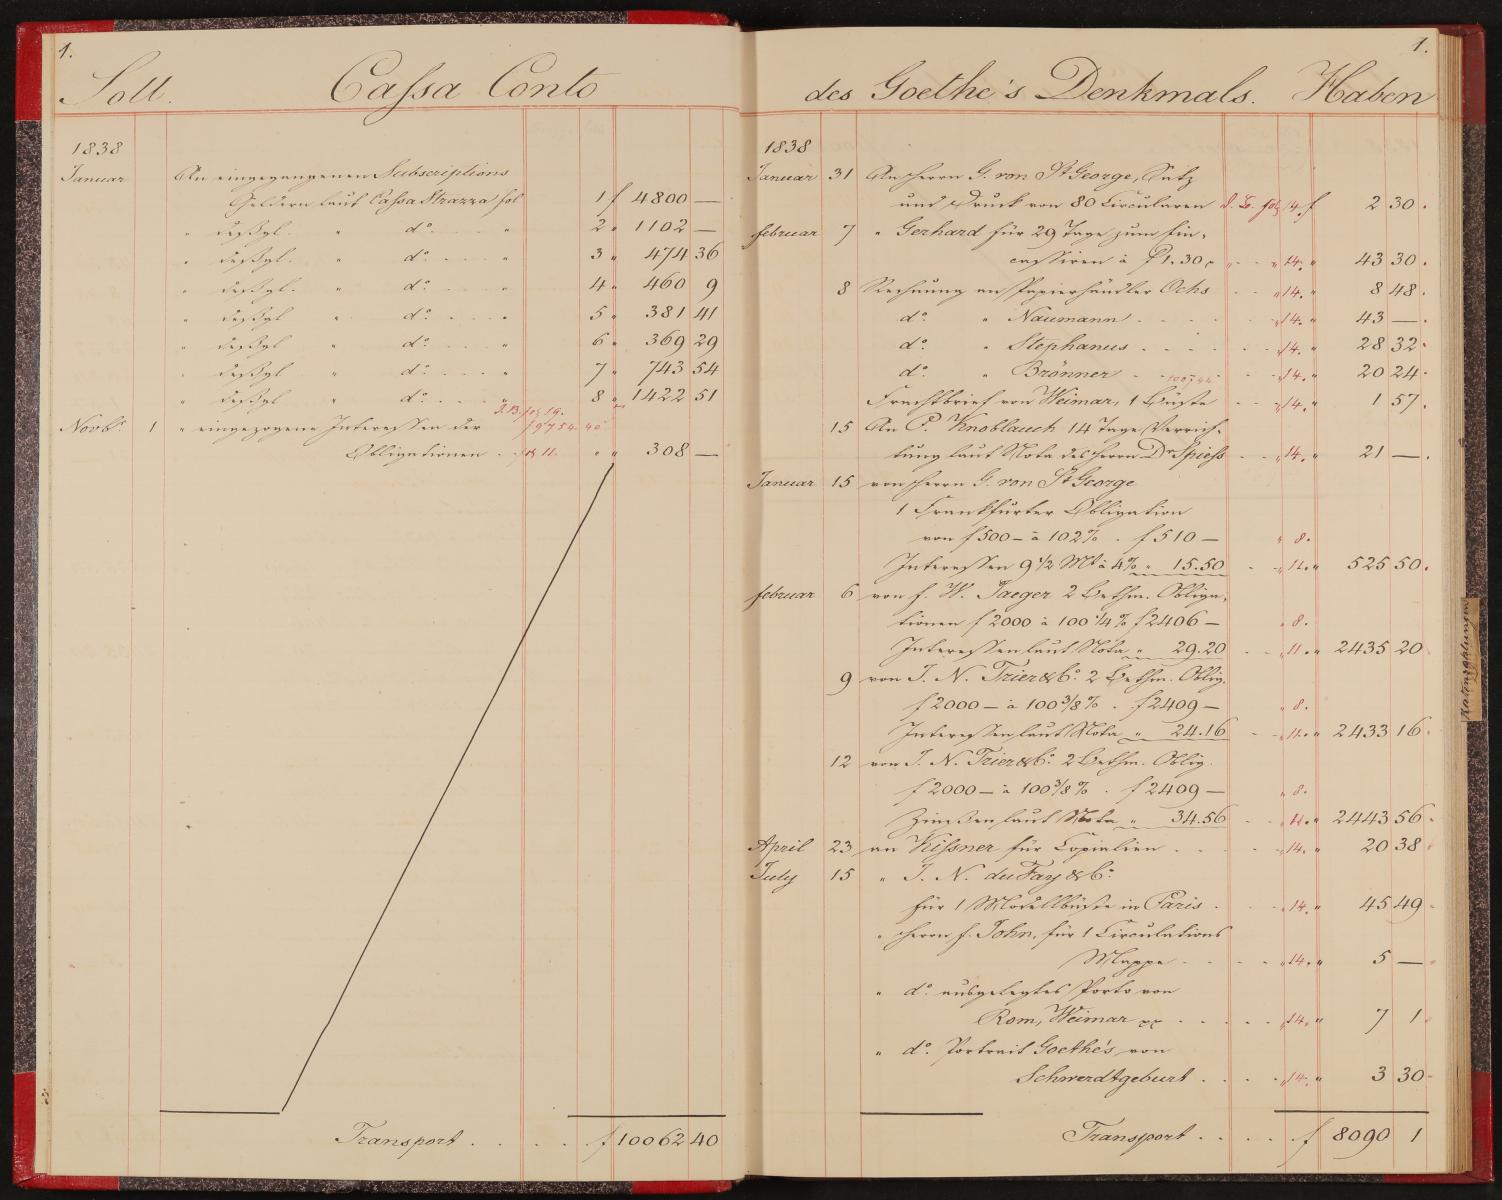 1.
Soll. Cassa Conto
1838
Januar An eingegangenen Subscriptions
Geldern laut Cassa Strazza fol 1 f 4800 —
" deßgl. " do. " 2 " 1102 —
" deßgl. " do. " 3 " 474 36
" deßgl. " do. " 4 " 460 9
" deßgl. " do. " 5 " 381 41
" deßgl. " do. " 6 " 369 29
" deßgl. " do. " 7 " 743 54
" deßgl. " do. " 8 " 1422 51
Novbr. 1 " eingezogene Interessen der f 9754. 40
Obligationen 11. " " 308 —
Transport . . . . . f 10062 40
1.
des Goethe's Denkmals. Haben
1838
Januar 31 An Herrn G. von St George, Satz
und Druck von 80 Circularen fol 14. f 2 30.
februar 7 " Gerhard für 29 Tage zum Ein-
cassiren à f 1.30 " 14. " 43 30.
8 Rechnung an Papierhändler Ochs " 14. " 8 48.
do. " Naumann " 14. " 43 —.
do. " Stephanus " 14. " 28 32.
do. " Brönner " 14. " 20 24.
Frachtbrief von Weimar, 1 Büste " 14. " 1 57.
15 An P. Knoblauch 14 Tage Verrich-
tung laut Nota des Herrn Dr Spiess " 14. " 21 —.
Januar 15 von Herrn G. von St George
1 Frankfurter Obligation
von f 500 — à 102% . f 510 — " 8.
Interessen 9 1/2 Mt à 4% " 15.50 " 11. " 525 50.
februar 6 von f. W. Jaeger 2 Bethm. Obliga-
tionen f 2000 à 100 1/4 % f 2406 — " 8.
Interessen laut Nota " 29.20 " 11. " 2435 20
9 von J. N. Trier & Co. 2 Bethm. Oblig.
f 2000 — à 100 3/8 % . f 2409 — " 8.
Interessen laut Nota " 24.16 " 11. " 2433 16.
12 von J. N. Trier & Co. 2 Bethm. Oblig.
f 2000 — à 100 3/8 % . f 2409 — " 8.
laut Nota " 34.56 " 11. " 2443 56.
April 23 an Kissner für Copialien " 14. " 20 38
July 15 " J. N. du Fay & Co.
für 1 Modellbüste in Paris " 14. " 45 49
" Herrn f. John, für 1 Circulations
Mappe " 14. " 5 —
" do. ausgelegtes Porto von
Rom, Weimar " 14. " 7 1.
" do. Portrait Goethe's von
Schwerdtgeburt " 14. " 3 30
Transport . . . . f 8090 1
Ratenzahlungen